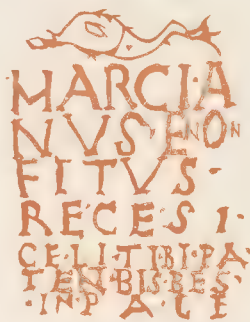 MARCI·A
NVS·ENON
FITVS·
RECES·I·
CE·L·I·TIBI·PA
TENBIS·BES·
·IN·P A·CE